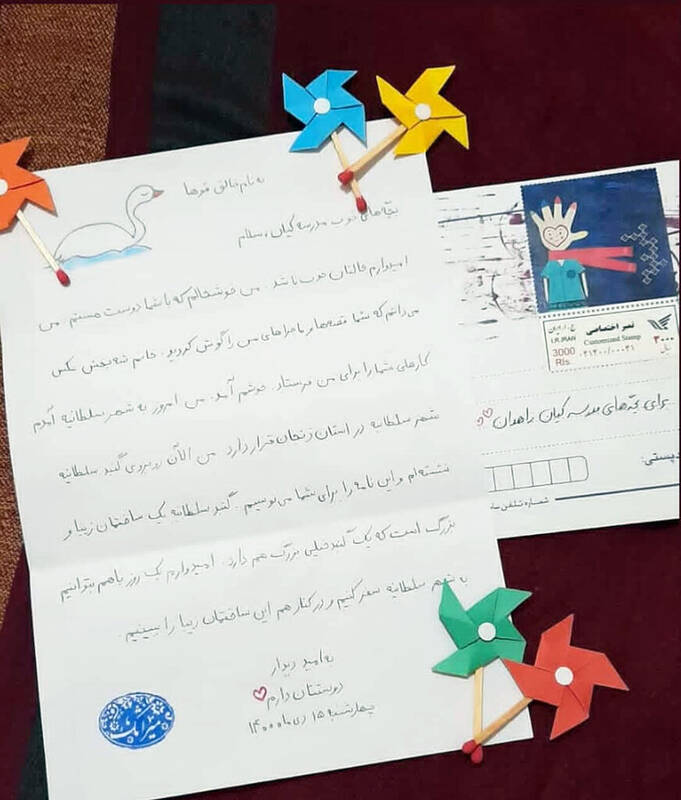 به نام خالق قوها
بچه‌های خوب مدرسه کیان، سلام
امیدوارم حالتان خوب باشد. من خوشحالم که با شما دوست هستم. من
می‌دانم که شما قصه‌ها و ماجراهای من را گوش کردید. خانم شه‌بخش عکس
کارهای شما را برای من فرستاد. خوشم آمد. من امروز به شهر سلطانیه آمدم
شهر سلطانیه در استان زنجان قرار دارد. من الآن روبروی گنبد سلطانیه
نشسته‌ام و این نامه را برای شما می‌نویسم. گنبد سلطانیه یک ساختمان زیبا و
بزرگ است که یک گنبد خیلی بزرگ هم دارد. امیدوارم یک روز با هم بتوانیم
به شهر سلطانیه سفر کنیم و در کنار هم این ساختمان زیبا را ببینیم.
به امید دیدار
دوستتان دارم
چهارشنبه ۱۵ دی ماه ۱۴۰۰
تمبر اختصاصی
ج.ا.ایران
I.R.IRAN
Customized Stamp
3000
Rls.
۳۰۰۰
ریال
برای بچه‌های مدرسه کیان زاهدان
شماره تلفن